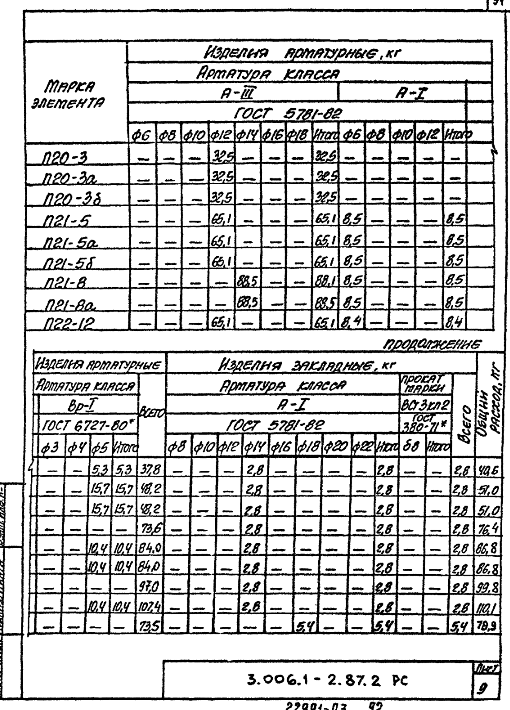 Изделия арматурные, кг
Марка элемента
Арматура класса
А-III А-I
ГОСТ 5781-82
ф6 ф8 ф10 ф12 ф14 ф16 ф18 Итого ф6 ф8 ф10 ф12 Итого
П20-3 — — — 32,5 — — — 32,5 — — — — —
П20-3а — — — 32,5 — — — 32,5 — — — — —
П20-3б — — — 32,5 — — — 32,5 — — — — —
П21-5 — — — 65,1 — — — 65,1 8,5 — — — 8,5
П21-5а — — — 65,1 — — — 65,1 8,5 — — — 8,5
П21-5б — — — 65,1 — — — 65,1 8,5 — — — 8,5
П21-8 — — — — 88,5 — — 88,1 8,5 — — — 8,5
П21-8а — — — — 88,5 — — 88,5 8,5 — — — 8,5
П22-12 — — — 65,1 — — — 65,1 8,4 — — — 8,4
продолжение
Изделия арматурные Изделия закладные, кг Общий расход, кг
Арматура класса Всего Арматура класса Прокат марки Всего
Вр-I А-I ВСт3кп2
ГОСТ 6727-80* ГОСТ 5781-82 ГОСТ 380-71*
ф3 ф4 ф5 Итого ф8 ф10 ф12 ф14 ф16 ф18 ф20 ф22 Итого δ8
— — 5,3 5,3 37,8 — — — 2,8 — — — — 2,8 — — 2,8 40,6
— — 15,7 15,7 48,2 — — — 2,8 — — — — 2,8 — — 2,8 51,0
— — 15,7 15,7 48,2 — — — 2,8 — — — — 2,8 — — 2,8 51,0
— — — — 73,6 — — — 2,8 — — — — 2,8 — — 2,8 76,4
— — 10,4 10,4 84,0 — — — 2,8 — — — — 2,8 — — 2,8 86,8
— — 10,4 10,4 84,0 — — — 2,8 — — — — 2,8 — — 2,8 86,8
— — — — 97,0 — — — 2,8 — — — — 2,8 — — 2,8 99,8
— — 10,4 10,4 107,4 — — — 2,8 — — — — 2,8 — — 2,8 110,1
— — — — 73,5 — — — — — 5,4 — — 5,4 — — 5,4 78,9
3.006.1-2.87.2 РС
Лист
9